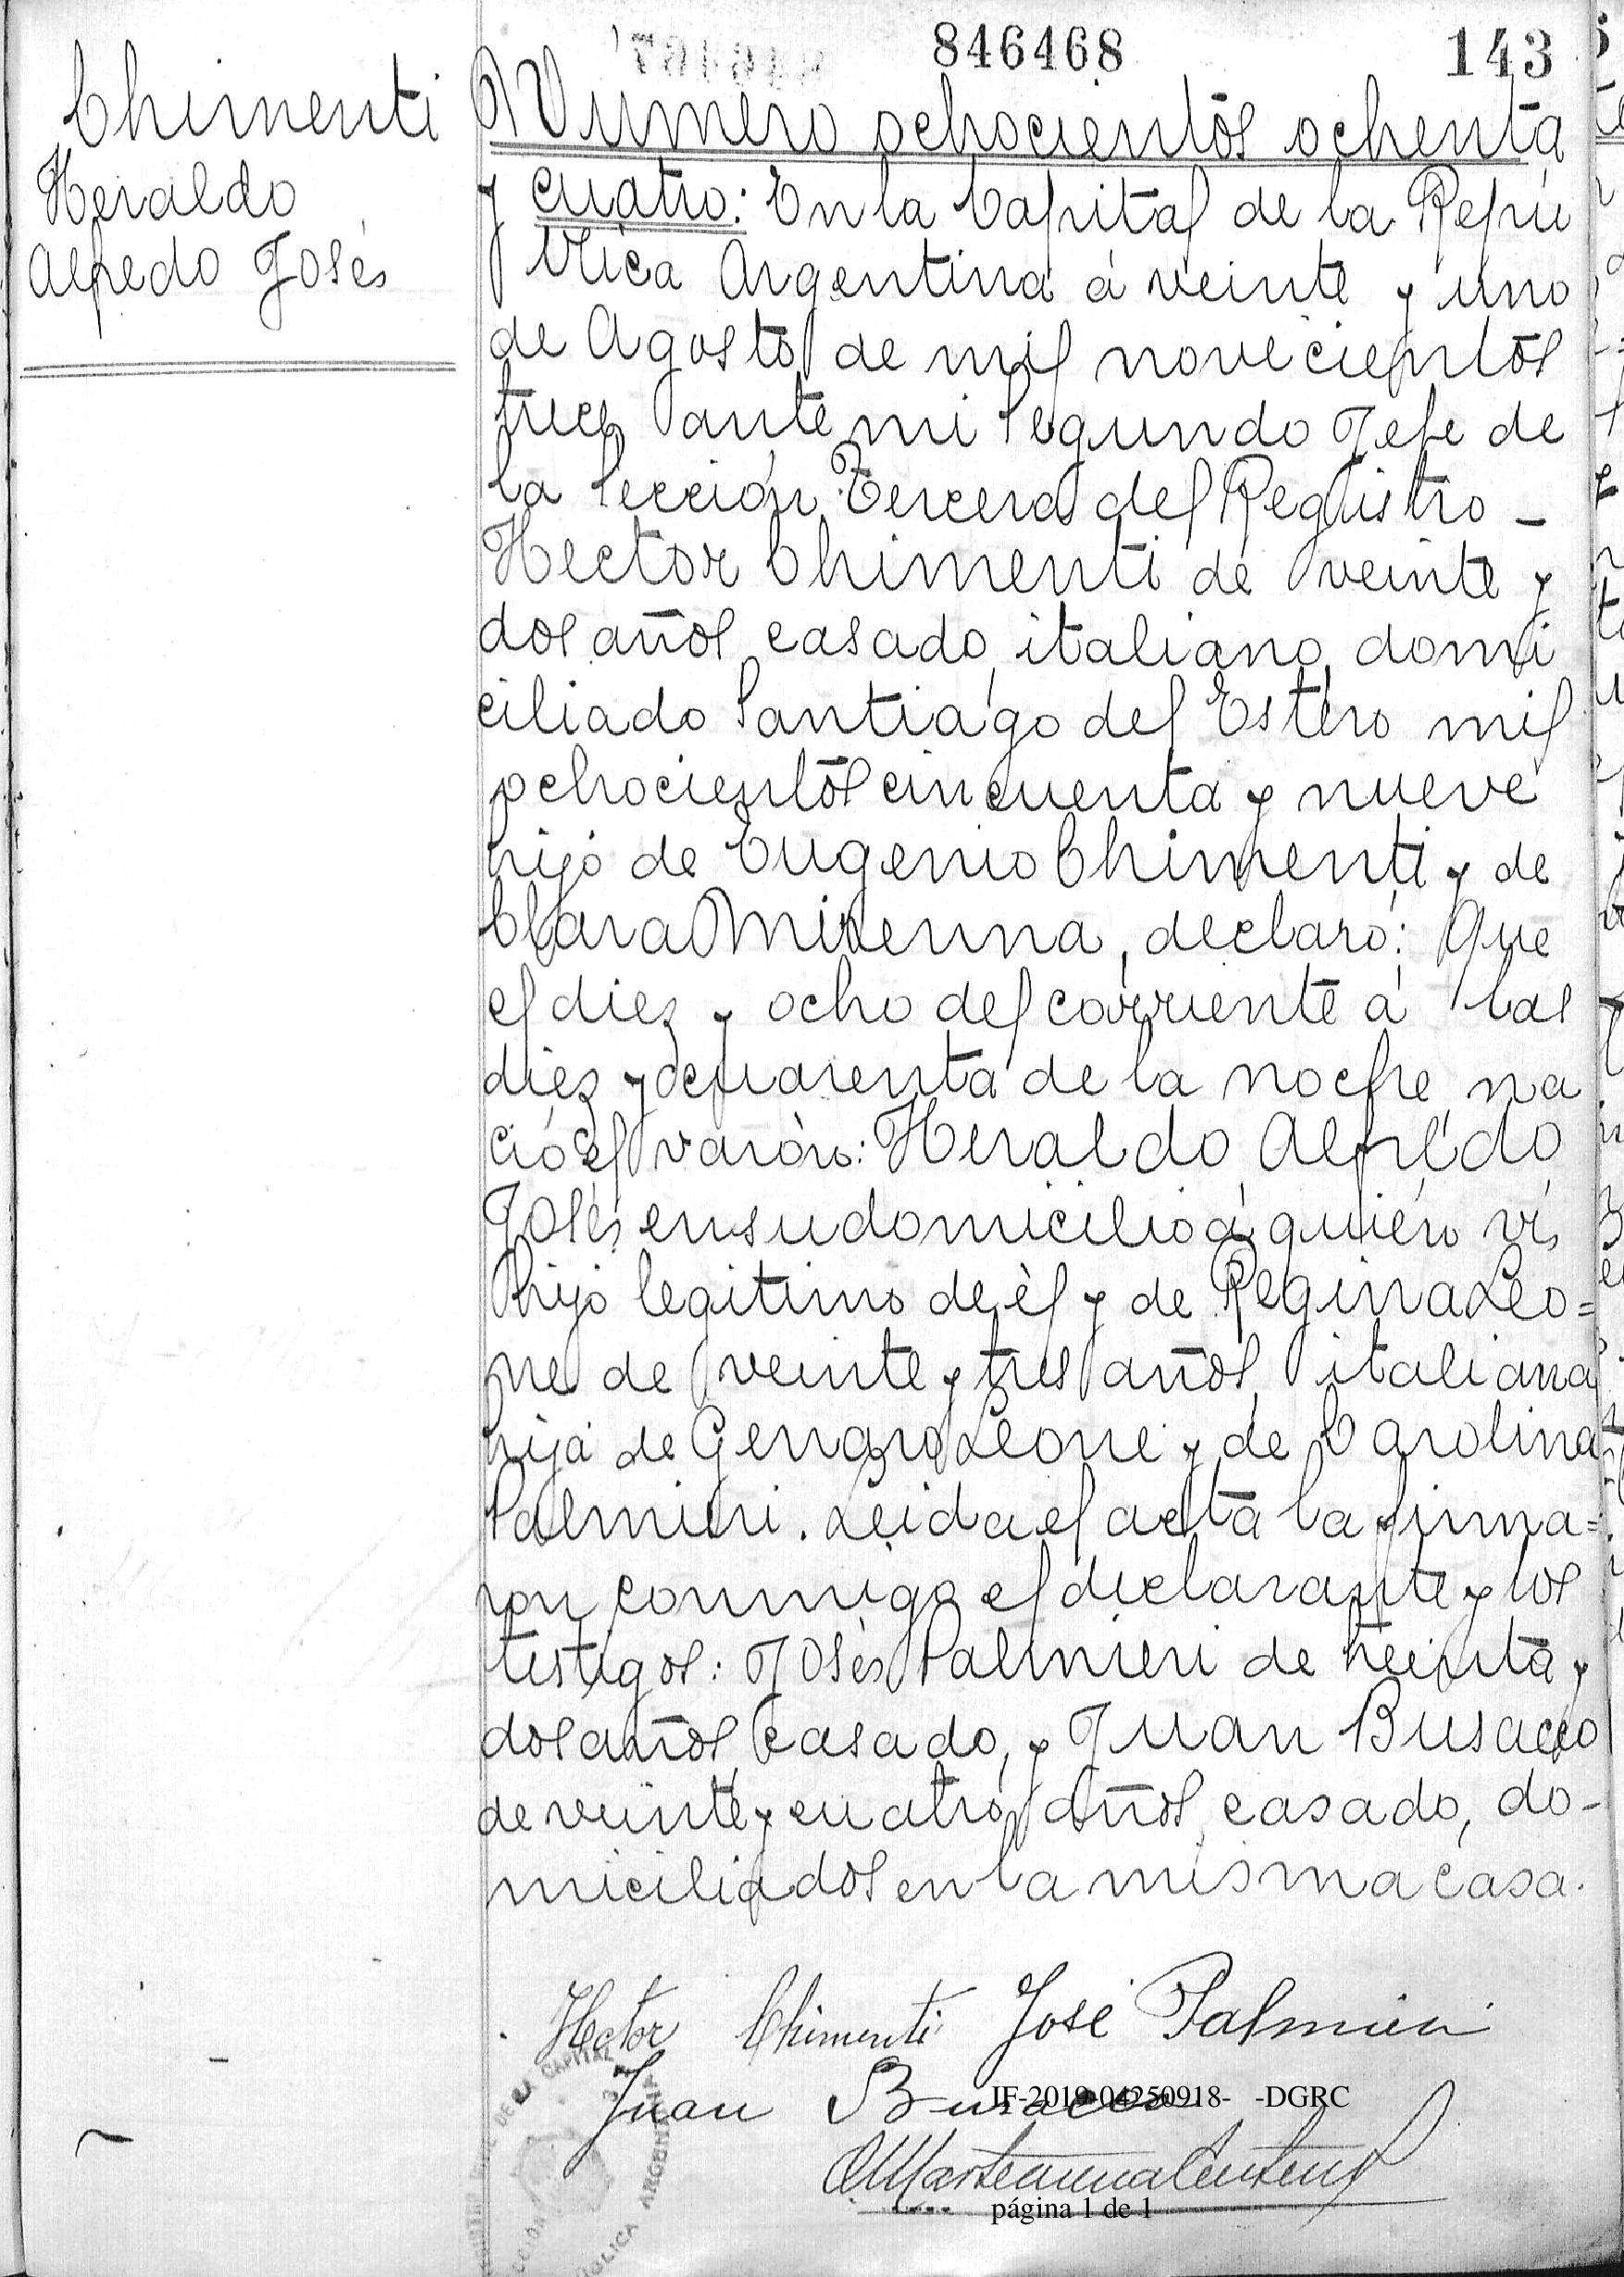 846468
143
Chimenti
Heraldo
Alfredo José
Numero ochocientos ochenta
y cuatro: En la Capital de la Repu
blica Argentina á veinte y uno
de Agosto de mil novecientos
trece ante mi Segundo Jefe de
la Sección Tercera del Registro -
Hector Chimenti de veinte y
dos años, casado, italiano, domi
ciliado Santiago del Estero mil
ochocientos cincuenta y nueve
hijo de Eugenio Chimenti y de
Clara, declaró: Que
el diez y ocho del corriente á las
diez y cuarenta de la noche na
ció el varón: Heraldo Alfredo
José, en su domicilio á quién ví,
hijo legitimo de él y de Regina Leo=
ne de veinte y tres años, italiana
hija de Genaro Leone y de Carolina
Palmieri. Leida el acta la firma=
ron conmigo el declarante y los
testigos: José Palmieri de treinta y
dos años, casado, y Juan Busacco
de veinte y cuatro años, casado, do-
miciliados en la misma casa.
Hector Chimenti José Palmieri
Juan Busacco
IF-2019-04250918- -DGRC
página 1 de 1
DE LA CAPITAL
ARGENTINA